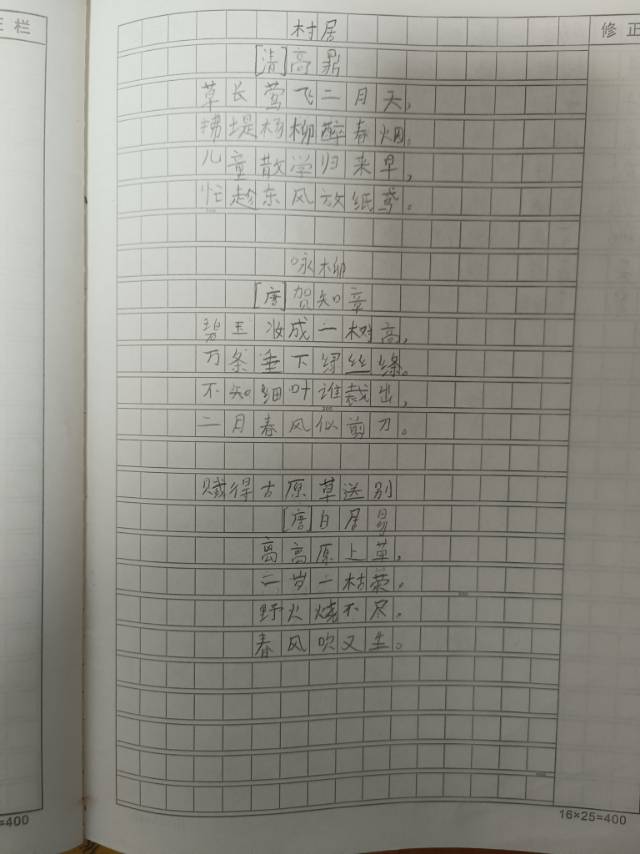 正栏
修正
村居
[清]高鼎
草长莺飞二月天,
拂堤杨柳醉春烟。
儿童散学归来早,
忙趁东风放纸鸢。
咏柳
[唐]贺知章
碧玉妆成一树高,
万条垂下绿丝绦。
不知细叶谁裁出,
二月春风似剪刀。
赋得古原草送别
[唐]白居易
离离原上草,
一岁一枯荣。
野火烧不尽,
春风吹又生。
=400
16×25=400